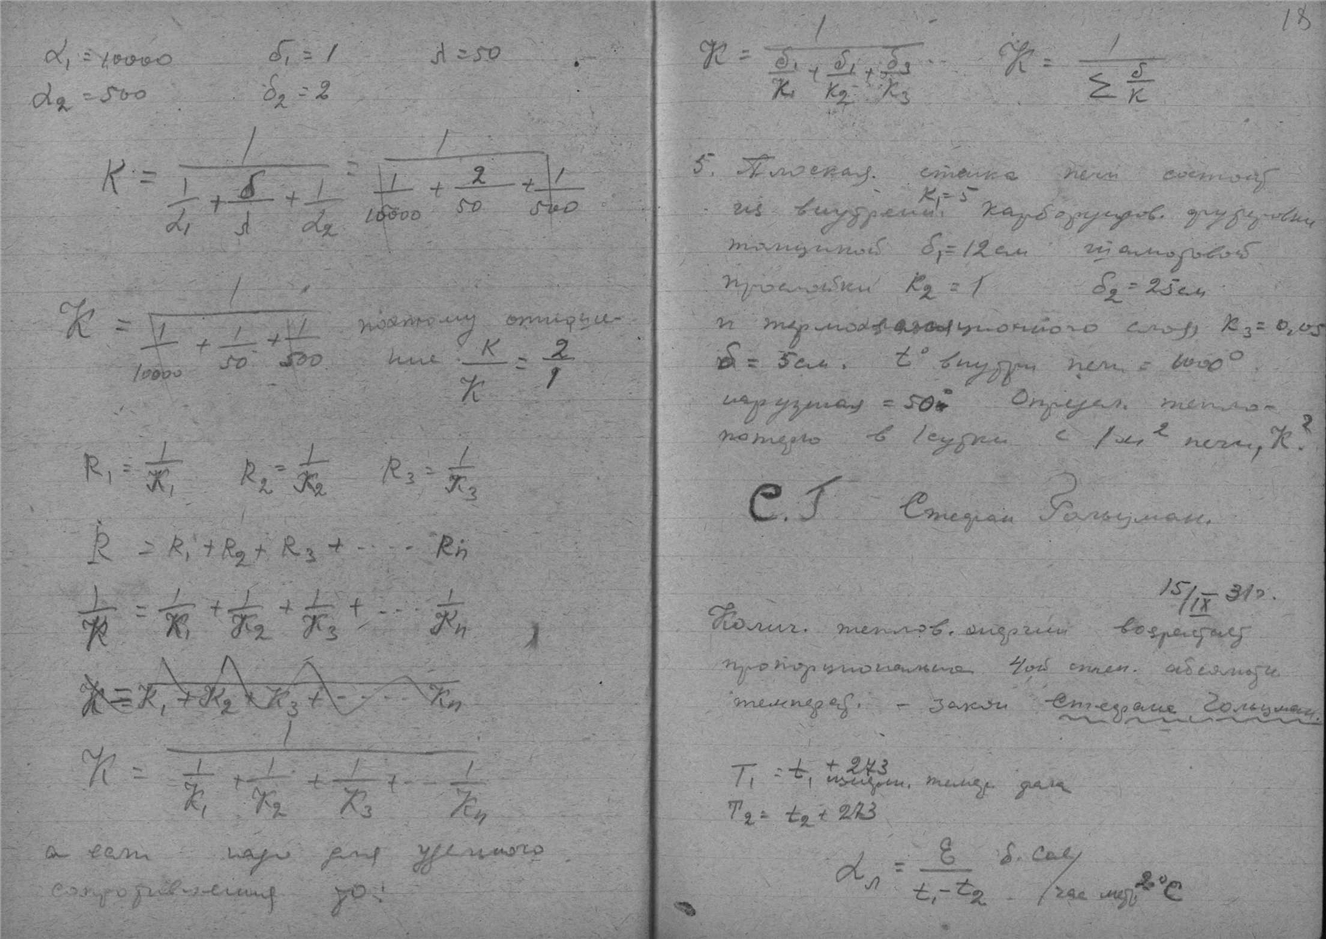 α₁ = 10000 δ₁ = 1 λ = 50
α₂ = 500 δ₂ = 2
K = 1 / (1/α₁ + δ/λ + 1/α₂) = 1 / (1/10000 + 2/50 + 1/500)
K = 1 / (1/10000 + 1/50 + 1/500) поэтому отноше-
ние K/K = 2/1
R₁ = 1/K₁ R₂ = 1/K₂ R₃ = 1/K₃
R = R₁ + R₂ + R₃ + ..... Rn
1/K = 1/K₁ + 1/K₂ + 1/K₃ + ... 1/Kn
K = K₁ + K₂ + K₃ + ..... Kn
K = 1 / (1/K₁ + 1/K₂ + 1/K₃ + ... 1/Kn)
а если надо для удельного
сопротивления то:
18
K = 1 / (δ₁/K₁ + δ₁/K₂ + δ₃/K₃ ... K = 1 / (Σ δ/K)
5. Плоская стенка печи состоит
из внутрен. K₁=5 карборундов. футеровки
толщиной δ₁=12см шамотовой
прослойки K₂ = 1 δ₂ = 25см
и термоизоляционного слоя K₃ = 0,05
δ = 5см. t° внутри печи = 1000°
наружная = 50° Определ. тепло-
потерю в 1 сутки с 1 м² печи, K.?
С.Г Стефан Гольцман.
15/IX 31г.
Колич. теплов. энергии возрастает
пропорционально 4ой степ. абсолютн
температ. - закон Стефана Гольцман.
T₁ = t₁ + 273
темпер
T₂ = t₂ + 273
αл = E / (t₁ - t₂) б. cal/час метр² °C